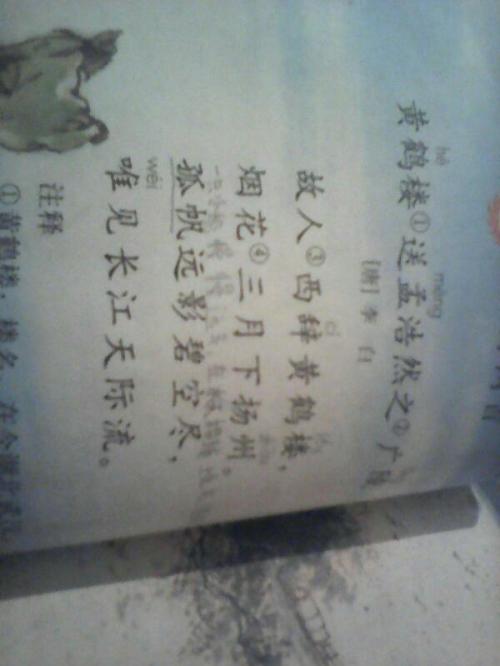 hè mèng
黄鹤楼①送孟浩然之②广陵
[唐] 李白
cí
故人③西辞黄鹤楼，
烟花④三月下扬州。
孤帆远影碧空尽，
wéi
唯见长江天际流。
注释
①黄鹤楼，楼名，在今湖北